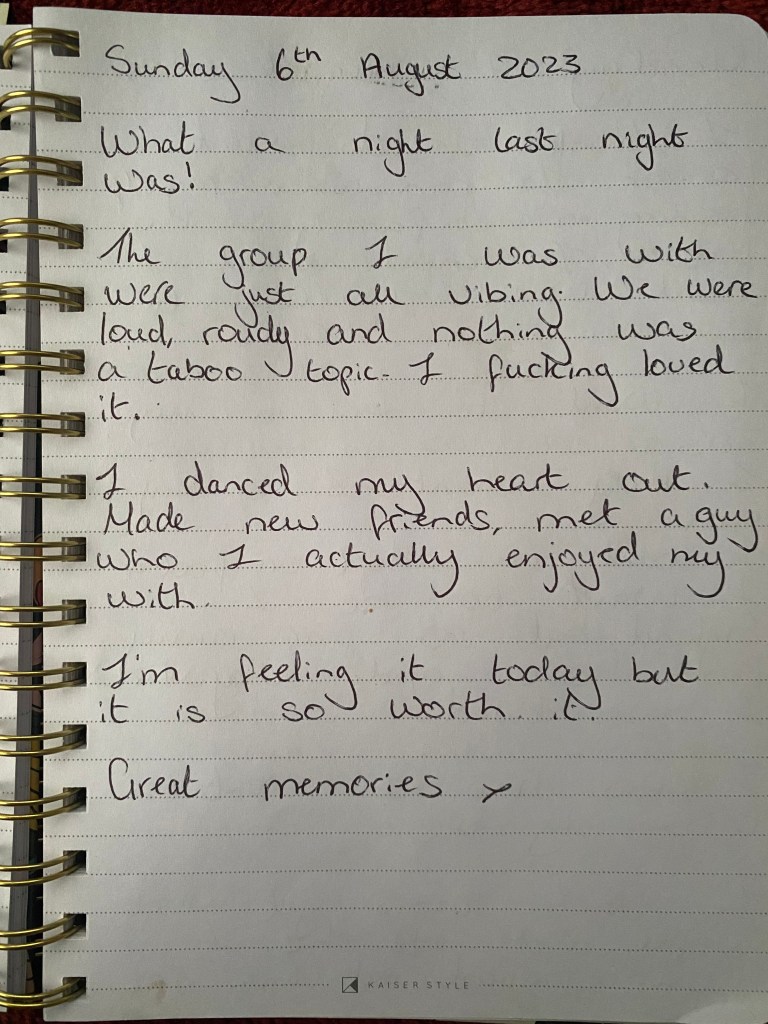 Sunday 6th August 2023
What a night last night
was!
The group I was with
were just all vibing. We were
loud, roudy and nothing was
a taboo topic. I fucking loved
it.
I danced my heart out.
Made new friends, met a guy
who I actually enjoyed my
with.
I'm feeling it today but
it is so worth it.
Great memories x
KAISER STYLE